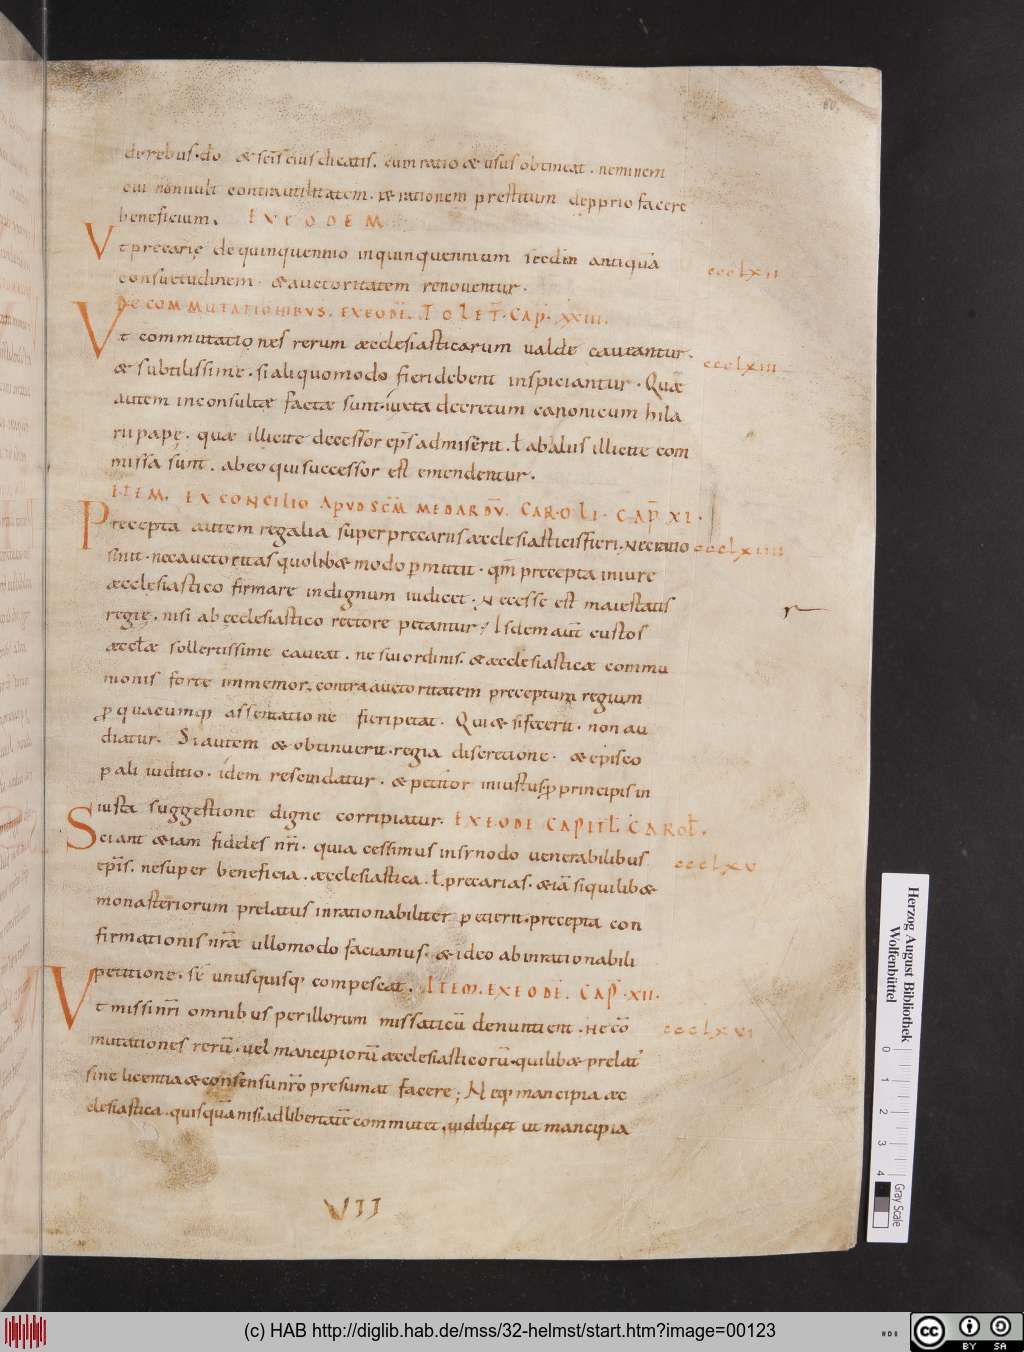 de rebus·do & scīs eius dicatis. cum ratio & usus obtineat. neminem
cui nonuult contra utilitatem. & rationem prestitum depprio facere
beneficium. EX EODEM
Vt precarię de quinquennio inquinquennium secdm antiquā
consuetudinem. & auctoritatem renouentur. cccLxii
DE COMMUTATIONIBVS. EX EODĒ. TOLĒT. CAP̄. XXIII.
Vt commutationes rerum æcclesiasticarum ualde caueantur.
& subtilissime. si aliquomodo fieri debent inspiciantur. Quæ cccLxiii
autem inconsultæ factæ sunt. iuxta decretum canonicum hila
rii papę. quæ illicite decessor ep̄s admiserit. ł ab alus illicite com
missa sunt. abeo qui successor est emendentur.
ITEM. EX CONCILIO APVD SC̄M MEDARDV̄. CAROLI. CAP̄ XI.
Precepta autem regalia super precariis æcclesiasticis fieri. Nec ratio cccLxiiii
sinit. nec auctoritas quolib& modo pmittit. qm̄ precepta iniure
æcclesiastico firmare indignum iudicet. Necesse est maiestatis
regię. nisi ab ecclesiastico rectore petantur; Isdem aūt custos
æccłæ sollertissime caueat. ne sui ordinis. & æcclesiasticæ commu
nionis forte inmemor. contra auctoritatem preceptum regium
p quacumq; assentatione fieri petat. Quiæ si fecerit. non au
diatur. Si autem & obtinuerit. regia discretione. & episco
pali iuditio. idem rescindatur. & petitor iniustus p principis in
iusta suggestione digne corripiatur. EX EODĒ CAPITŁ. CAROŁ.
Sciant &iam fideles nr̄i. quia cessimus insynodo uenerabilibus cccLxv
ep̄is. ne super beneficia. æcclesiastica. ł. precarias. &iā si quilib&
monasteriorum prelatus inrationabiliter petierit. precepta con
firmationis nr̄æ ullomodo faciamus. & ideo ab inrationabili
petitione. sē unusquisq; compescat. ITEM. EX EODĒ. CAP̄. XII.
Vt missi nr̄i omnibus per illorum missaticū denuntient. Ne cō cccLxvi
mutationes rerū. uel mancipiorū æcclesiasticorū. quilib& prelat'
sine licentia & consensu nr̄o presumat facere; Neq; mancipia æc
clesiastica. quisquā nisi ad libertatē commutet. uidelicet ut mancipia
VII
Herzog August Bibliothek
Wolfenbüttel
0 1 2 3 4
Gray Scale
(c) HAB http://diglib.hab.de/mss/32-helmst/start.htm?image=00123
cc BY SA